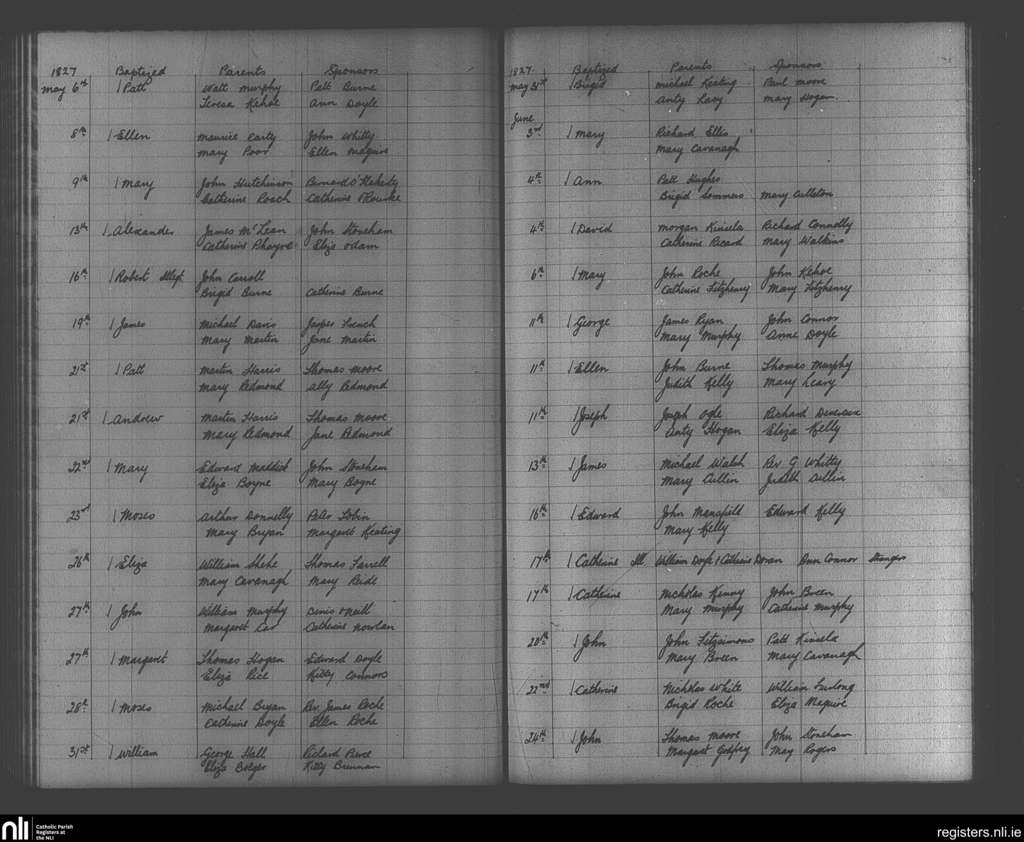 1827 Baptized Parents Sponsors
May 6th 1 Patt Watt Murphy Patt Burne
Teresa Kehoe Ann Doyle
8th 1 Ellen Maurice Carty John Whitty
Mary Poor Ellen Maguire
9th 1 Mary John Hutchinson Bernard O'Flaherty
Catherine Roach Catherine O'Rourke
13th 1 Alexander James McLean John Stoneham
Catherine Eliza Odam
16th 1 Robert Illegt John Carroll
Brigid Burne Catherine Burne
19th 1 James Michael Davis Jasper French
Mary Martin Jane Martin
21st 1 Patt Martin Harris Thomas Moore
Mary Redmond Ally Redmond
21st 1 Andrew Martin Harris Thomas Moore
Mary Redmond Jane Redmond
22nd 1 Mary Edward Maddick John Stoneham
Eliza Boyne Mary Boyne
23rd 1 Moses Arthur Donnelly Peter Tobin
Mary Bryan Margaret Keating
26th 1 Eliza William Shehe Thomas Farrell
Mary Cavanagh Mary Reide
27th 1 John William Murphy Denis O'Neill
Margaret Catherine Nowlan
27th 1 Margaret Thomas Hogan Edward Doyle
Eliza Rice Kitty Connors
28th 1 Moses Michael Bryan Rev. James Roche
Catherine Doyle Ellen Roche
31st 1 William George Hall Richard Pierce
Eliza Bolger Kitty Brennan
1827 Baptized Parents Sponsors
May 31st 1 Brigid Michael Keating Paul Moore
Anty Lacy Mary Hogan
June
3rd 1 Mary Richard Ellis
Mary Cavanagh
4th 1 Ann Patt Hughes
Brigid Sommers Mary Culleton
4th 1 David Morgan Kinsela Richard Connolly
Catherine Ricard Mary Watkins
6th 1 Mary John Roche John Kehoe
Catherine Fitzhenry Mary Fitzhenry
11th 1 George James Ryan John Connor
Mary Murphy Anne Doyle
11th 1 Ellen John Burne Thomas Murphy
Judith Kelly Mary Leary
11th 1 Joseph Joseph Ogle Richard Devereux
Anty Hogan Eliza Kelly
13th 1 James Michael Walsh Rev G Whitty
Mary Cullin Judith Cullin
16th 1 Edward John Mansfield Edward Kelly
Mary Kelly
17th 1 Catherine Ill. William Doyle / Catherine Doran Ann Connor Strangers
17th 1 Catherine Nicholas Kenny John Breen
Mary Murphy Catherine Murphy
20th 1 John John Fitzsimons Patt Kinsela
Mary Breen Mary Cavanagh
22nd 1 Catherine Nicholas White William Furlong
Brigid Roche Eliza Maguire
24th 1 John Thomas Moore John Stoneham
Margaret Godfrey May Rogers
nli Catholic Parish
Registers at
the NLI
registers.nli.ie